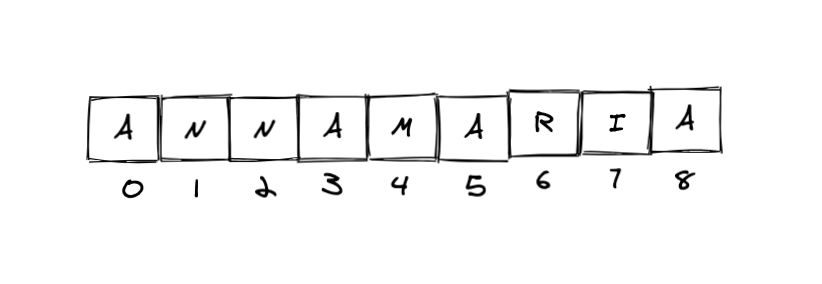 A N N A M A R I A
0 1 2 3 4 5 6 7 8